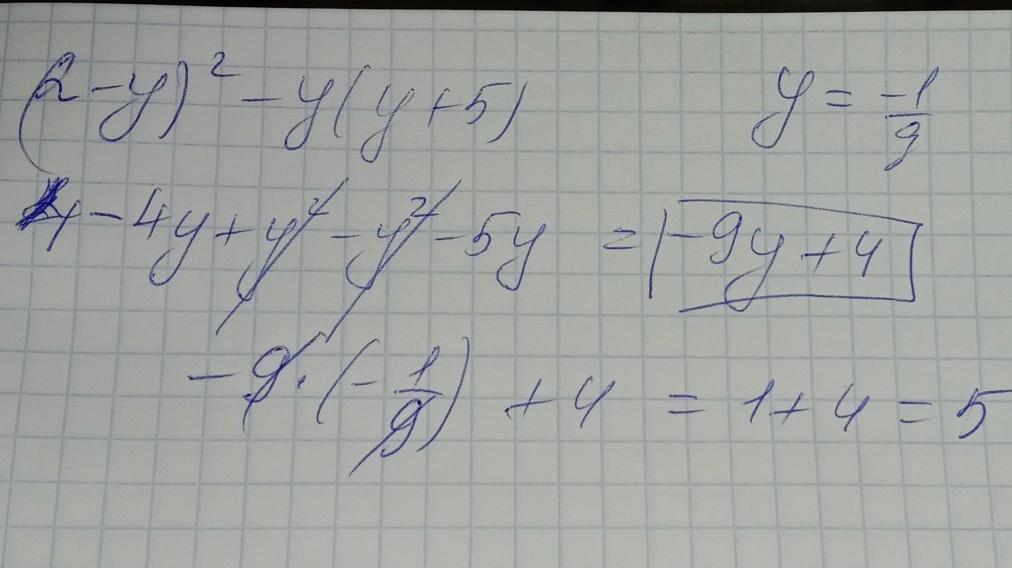 (2-y)² - y(y+5)    y = -1/9
4 - 4y + y² - y² - 5y = -9y + 4
-9·(-1/9) + 4 = 1 + 4 = 5